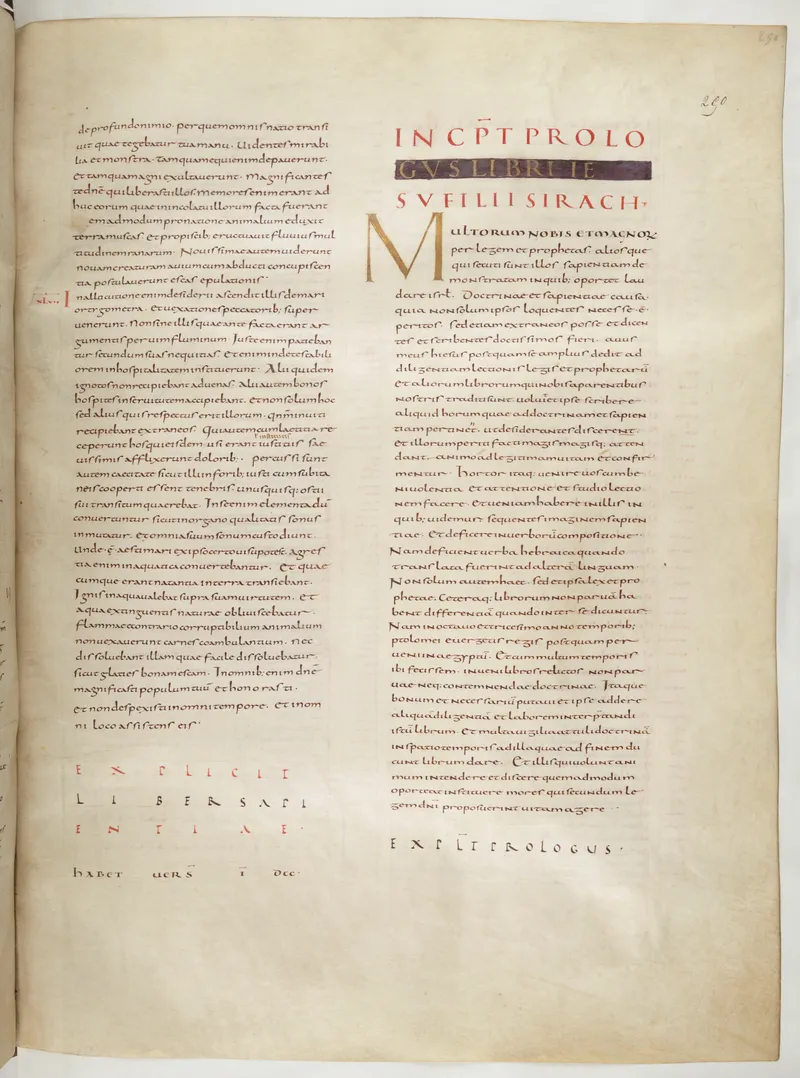 290
de profundo nimio. per quem omnis natio transi
uit quae tegebatur tua manu. Uidentes mirabi
lia et monstra. Tamquam equi enim depauerunt.
et tamquam agni exultauerunt. Magnificantes
te dnē qui liberasti illos. Memores enim erant ad
huc eorum quae in incolatu illorum facta fuerant
em ad modum pro natione animalium eduxit
terra muscas. et pro piscib; eructauit fluuius mul
titudinem ranarum. Nouissimae autem uiderunt
nouam creaturam auium cum abducti concupiscen
tia postulauerunt escas epulationis.
In allocutione enim desiderii ascendit illis de mari
ortygometra. et uexationes peccatorib; super
uenerunt. Non sine illis quae ante facta erant ar
gumentis per uim fluminum. Juste enim patieban
tur secundum suas nequitias. Etenim detestabili
orem inhospitalitatem instituerunt. Alii quidem
ignotos non recipiebant aduenas. Alii autem bonos
hospites in seruitutem accipiebant. et non solum hoc
sed alius quis respectus erit illorum. qnm inuiti
recipiebant extraneos. Qui autem cum laetitia re
ceperunt hos qui eisdem usi erant iustitiis sae
uissimis afflixerunt dolorib;. percussi sunt
autem caecitate sicut illi in forib; iusti cum subita
neis cooperti essent tenebris. unusquisq; osti
sui transitum quaerebat. In se enim elementa dū
conuertuntur sicut in organo qualitatis sonus
inmutatur. et omnia suum sonum custodiunt.
Unde ē aestimari ex ipso certo uisu potest. Agres
tia enim in aquatica conuertebantur. Et quae
cumque erant natantia in terra transiebant.
Ignis in aqua ualebat supra suam uirtutem. et
aqua extinguentis naturae obliuiscebatur.
flammae contrario corruptibilium animalium
non uexauerunt carnes coambulantium. nec
dissoluebant illam quae facile dissoluebatur.
sicut glacies bonam escam. In omnib; enim dnē
magnificasti populum tuū et honorasti.
et non despexisti in omni tempore. et in om
ni loco assistens eis.
EXPLICIT
LIBER SAPI
ENTIAE.
habet uers ī dcc.
INCPT PROLO
GUS LIBRI IE
SU FILII SIRACH.
MULTORUM NOBIS ET MAGNOR
per legem et prophetas aliosque
qui secuti sunt illos sapientiam de
monstratam in quib; oportet lau
dare isrl. Doctrinae et sapientiae causa.
quia non solum ipsos loquentes necesse ē
peritos. sed etiam extraneos posse et dicen
tes et scribentes doctissimos fieri. auus
meus hiesus postquam se amplius dedit ad
diligentiam lectionis legis et prophetarū
et aliorum librorum qui nobis a parentibus
nostris traditi sunt. uoluit et ipse scribere
aliquid horum quae ad doctrinam et sapien
tiam pertinet. ut desiderantes discere nt.
et illorum periti facti magis magisq; atten
dant animo ad legitimam uitam et confir
mentur. Hortor itaq; uenire uos cum be
niuolentia et attentione et studio lectio
nem facere. et ueniam habere in illis in
quib; uidemur sequentes imaginem sapien
tiae. et deficere in uerborū compositione.
Nam deficiunt uerba hebraica quando
translata fuerint ad alterā linguam.
Non solum autem haec. sed et ipsa lex et pro
phetae. Ceteraq; librorum non paruā ha
bent differentiā quando inter se dicuntur.
Nam in octauo et tricesimo anno temporib;
ptolomei euergetis regis postquam per
ueni in aegyptū. et cum multum temporis
ibi fecissem. inueni libros relictos non par
uae neq; contemnendae doctrinae. Itaque
bonum et necessariū putaui et ipse addere
aliquā diligentiā et laborem interptandi
istū librum. et multa uigilia attuli doctrinā
in spatio temporis ad illa quae ad finem du
cunt librum dare. Et illis qui uolunt ani
mum intendere et discere quemadmodum
oporteat instituere mores qui secundum le
gem dni proposuerint uitam agere
EXPLT PROLOGUS.